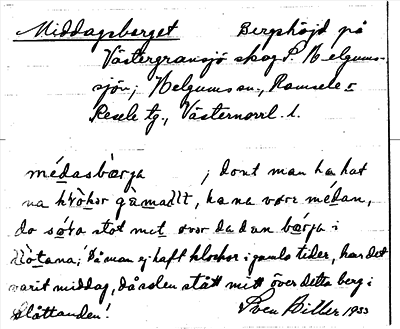 Middagsberget Bergshöjd på
Västergransjö skog S. Helgums-
sjön; Helgums sn., Ramsele o
Resele tg., Västernorrl. l.
médasbärja ; dont man ha hat
na kḷoker gamaḷt, ha na vore médan,
do sóṛa stot met over da dan bärja i
; Då man ej haft klockor i gamla tider, har det
varit middag, då solen stått mitt över detta berg i
slåttanden!
Sven Biller 1933